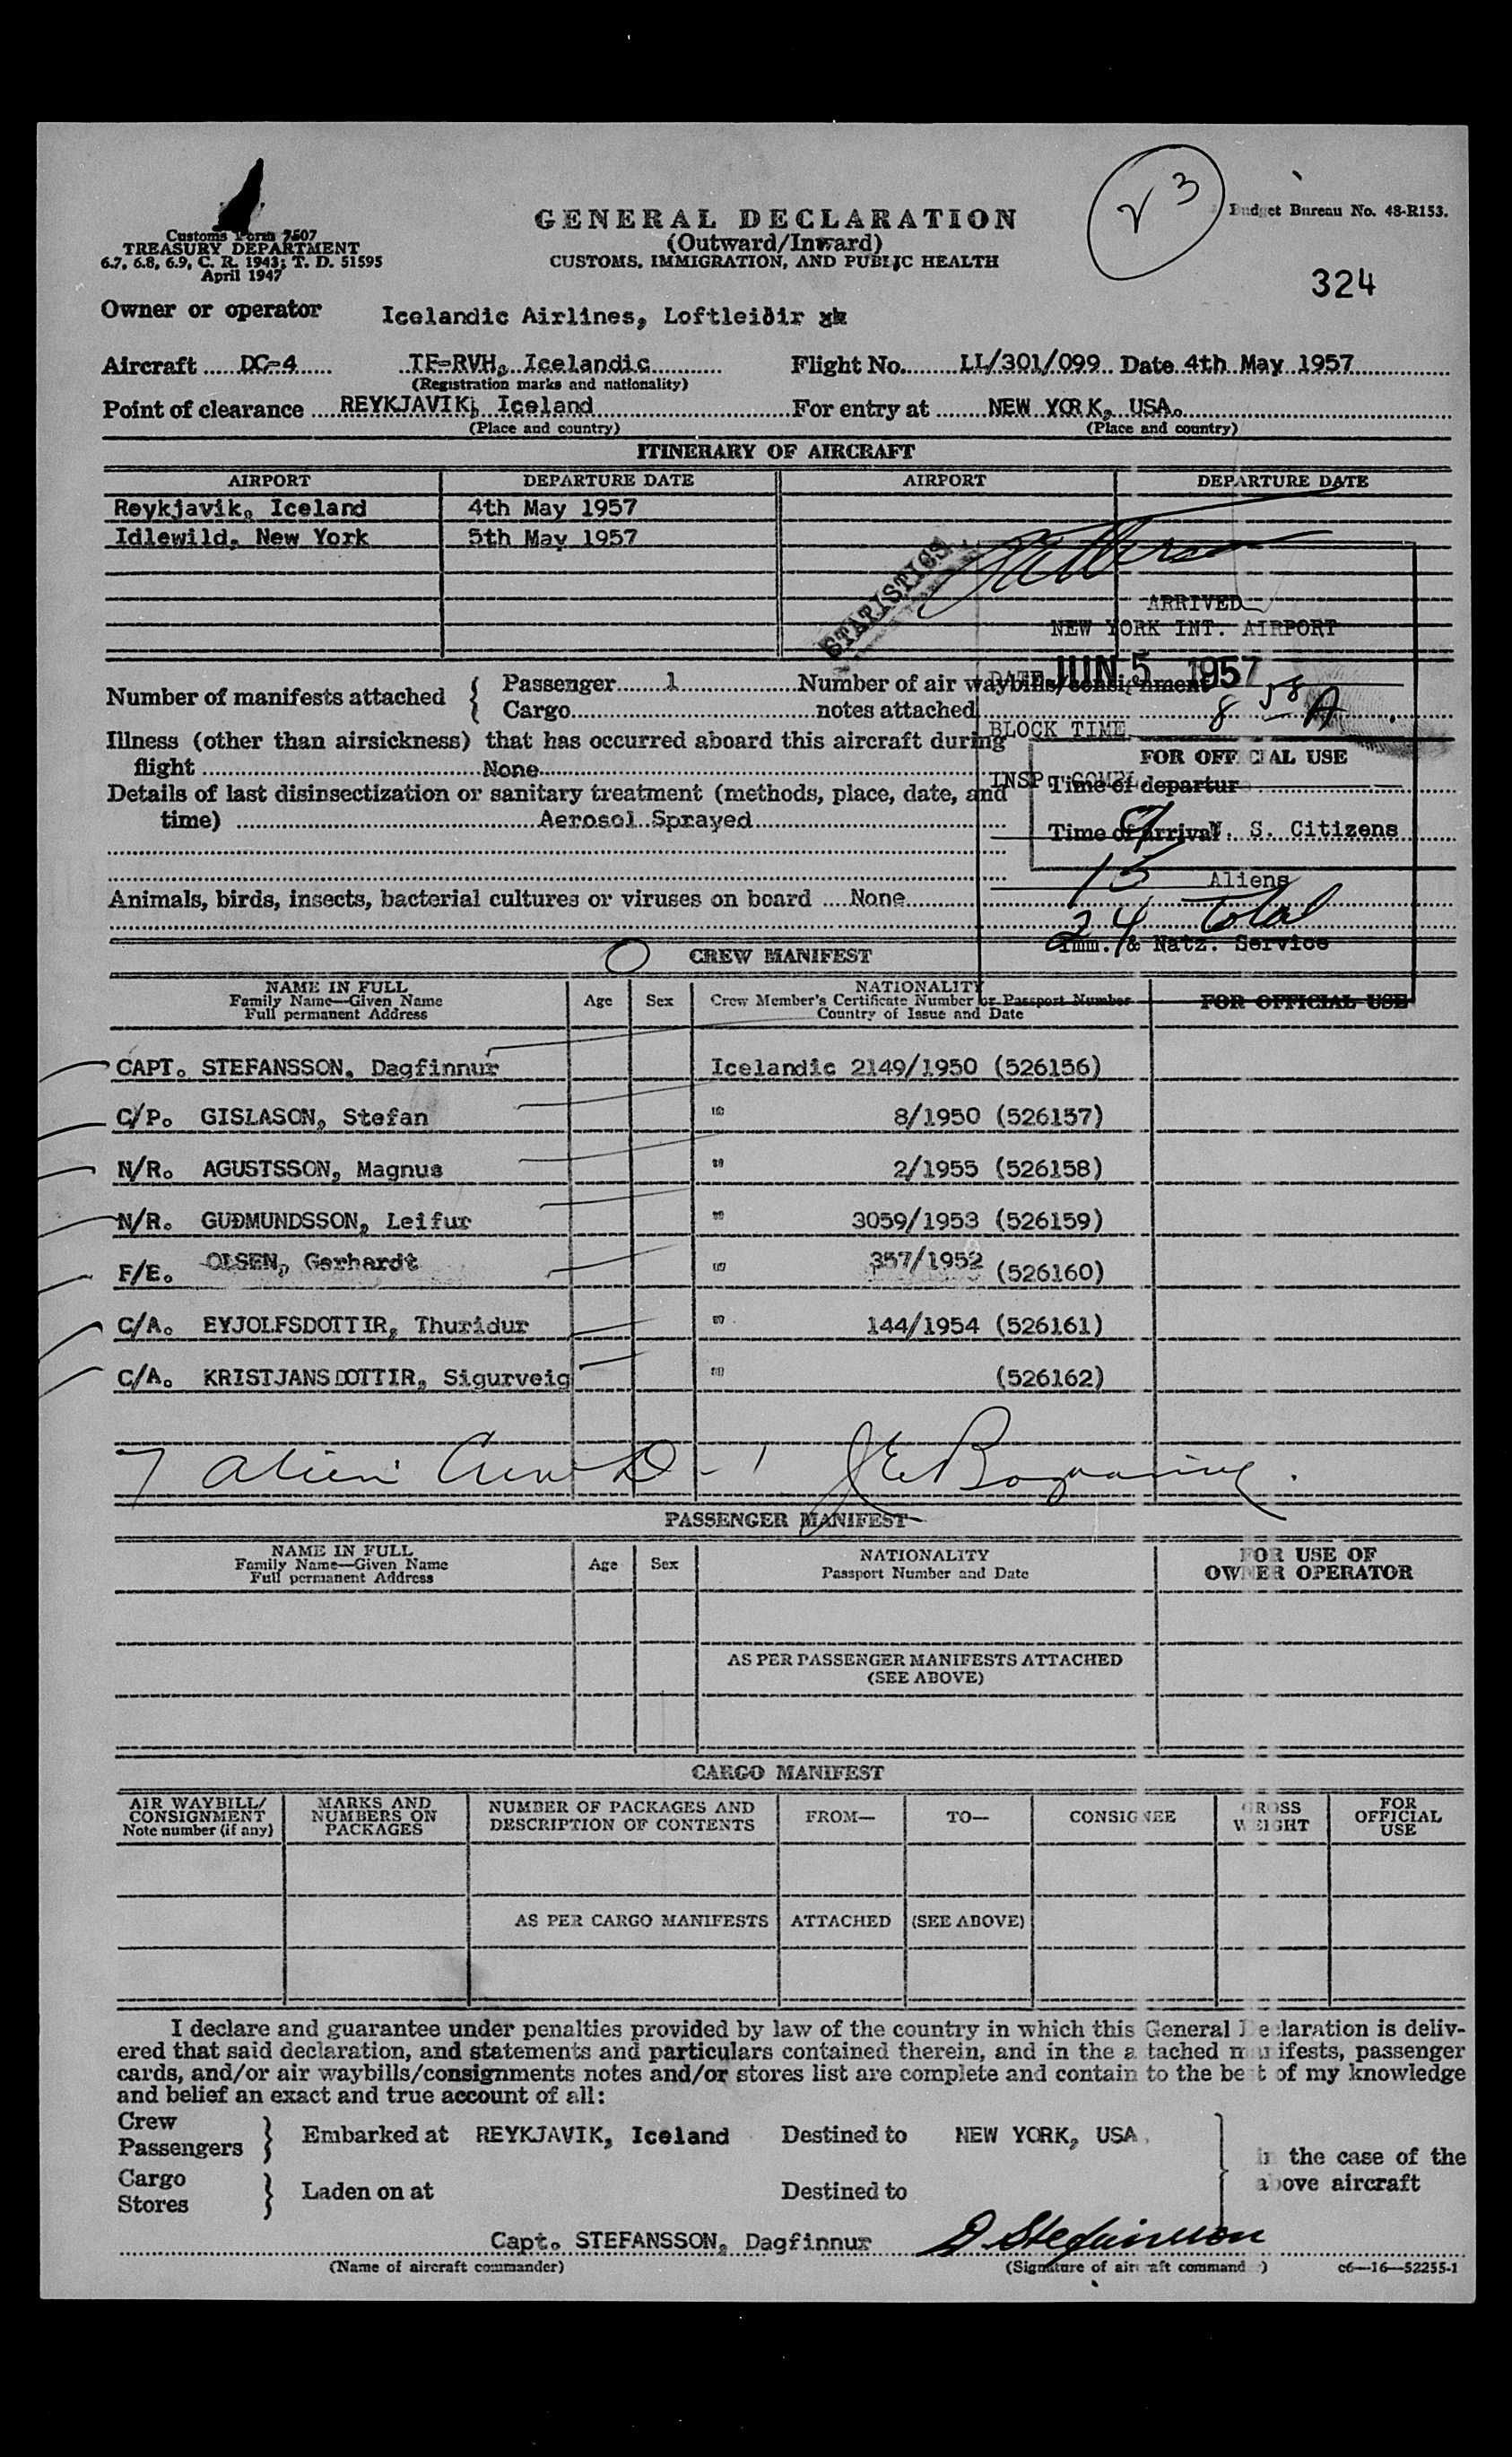 Customs Form 7507
TREASURY DEPARTMENT
6.7, 6.8, 6.9, C. R. 1943; T. D. 51595
April 1947
GENERAL DECLARATION
(Outward/Inward)
CUSTOMS, IMMIGRATION, AND PUBLIC HEALTH
3
Budget Bureau No. 48-R153.
324
Owner or operator Icelandic Airlines, Loftleiðir
Aircraft DC-4 TF-RVH, Icelandic Flight No. LL/301/099 Date 4th May 1957
(Registration marks and nationality)
Point of clearance REYKJAVIK, Iceland For entry at NEW YORK, USA.
(Place and country) (Place and country)
ITINERARY OF AIRCRAFT
AIRPORT DEPARTURE DATE AIRPORT DEPARTURE DATE
Reykjavik, Iceland 4th May 1957
Idlewild, New York 5th May 1957
STATISTICS
ARRIVED
NEW YORK INT. AIRPORT
DATE JUN 5 1957
Number of manifests attached { Passenger 1 Number of air waybills/consignment
Cargo notes attached
8 58 A
BLOCK TIME
Illness (other than airsickness) that has occurred aboard this aircraft during
flight None
FOR OFFICIAL USE
INSP. COMPL
Time of departur
Details of last disinsectization or sanitary treatment (methods, place, date, and
time) Aerosol Sprayed
Time of arrival
9 U. S. Citizens
15 Aliens
Animals, birds, insects, bacterial cultures or viruses on board None
24 Total
Imm. & Natz. Service
CREW MANIFEST
NAME IN FULL
Family Name—Given Name
Full permanent Address
Age Sex
NATIONALITY
Crew Member's Certificate Number or Passport Number
Country of Issue and Date
FOR OFFICIAL USE
CAPT. STEFANSSON, Dagfinnur Icelandic 2149/1950 (526156)
C/P. GISLASON, Stefan " 8/1950 (526157)
N/R. AGUSTSSON, Magnus " 2/1955 (526158)
N/R. GUÐMUNDSSON, Leifur " 3059/1953 (526159)
F/E. OLSEN, Gerhardt " 357/1952 (526160)
C/A. EYJOLFSDOTTIR, Thuridur " 144/1954 (526161)
C/A. KRISTJANSDOTTIR, Sigurveig " (526162)
7 alien Crew D-1
PASSENGER MANIFEST
NAME IN FULL
Family Name—Given Name
Full permanent Address
Age Sex
NATIONALITY
Passport Number and Date
FOR USE OF
OWNER OPERATOR
AS PER PASSENGER MANIFESTS ATTACHED
(SEE ABOVE)
CARGO MANIFEST
AIR WAYBILL/
CONSIGNMENT
Note number (if any)
MARKS AND
NUMBERS ON
PACKAGES
NUMBER OF PACKAGES AND
DESCRIPTION OF CONTENTS
FROM—
TO—
CONSIGNEE
GROSS
WEIGHT
FOR
OFFICIAL
USE
AS PER CARGO MANIFESTS ATTACHED (SEE ABOVE)
I declare and guarantee under penalties provided by law of the country in which this General Declaration is deliv-
ered that said declaration, and statements and particulars contained therein, and in the attached manifests, passenger
cards, and/or air waybills/consignments notes and/or stores list are complete and contain to the best of my knowledge
and belief an exact and true account of all:
Crew
Passengers } Embarked at REYKJAVIK, Iceland Destined to NEW YORK, USA.
in the case of the
above aircraft
Cargo
Stores } Laden on at Destined to
Capt. STEFANSSON, Dagfinnur D. Stefánsson
(Name of aircraft commander) (Signature of aircraft command )
c6—16—52255-1